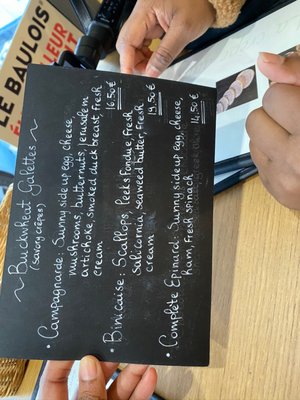 LE BAULOIS
~ Buckwheat Galettes ~
(savory crêpes)
• Campagnarde: Sunny side up egg, cheese,
mushrooms, butternuts, Jerusalem
artichoke, smoked duck breast, fresh
cream 16.50€
• Binicaise: Scallops, leeks fondue, fresh
salicornia, seaweed butter, fresh
cream 19.50€
• Complète Epinard: Sunny side up egg, cheese,
Ham, Fresh spinach 14.50€